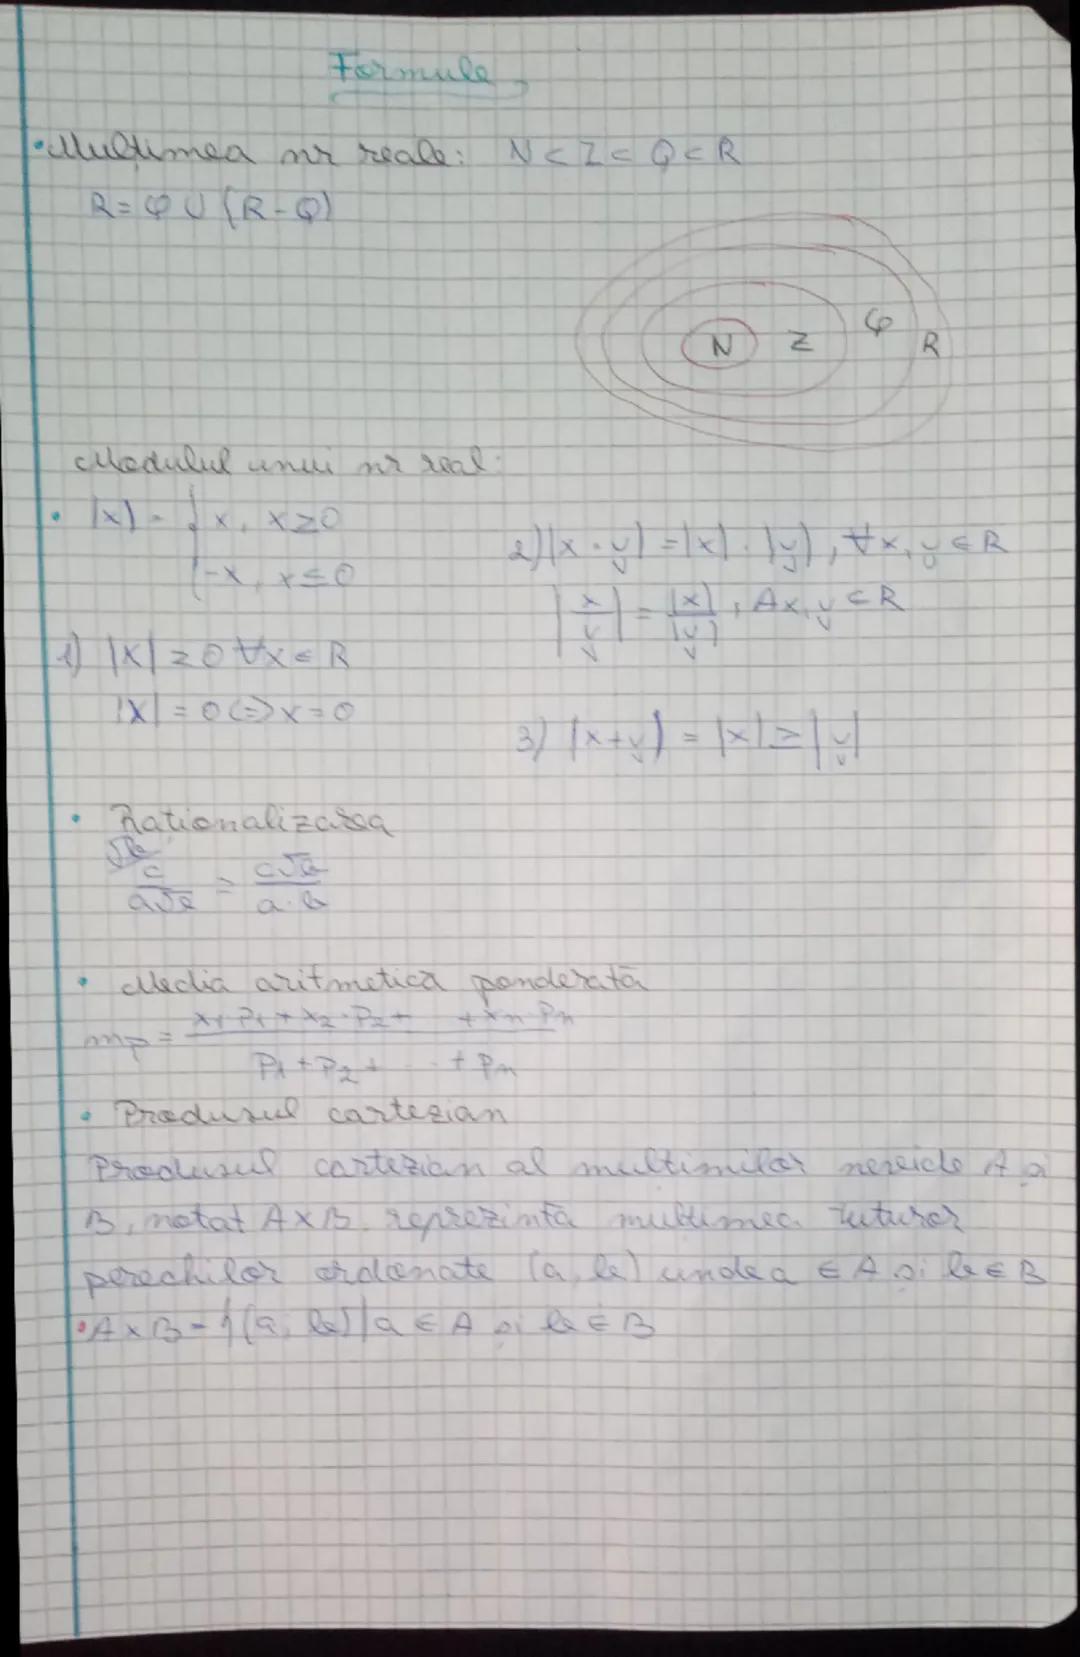 Formule
• Mulțimea nr reale: N ⊂ Z ⊂ Q ⊂ R
R = Q ∪ (R - Q)
N Z Q R
Modulul unui nr real:
• |x| = { x, x ≥ 0
{ -x, x ≤ 0
1) |x| ≥ 0 ∀x ∈ R
|x| = 0 <=> x = 0
2) |x · y| = |x| · |y|, ∀x, y ∈ R
|x/y| = |x|/|y|, ∀x, y ∈ R
3) |x+y| = |x| ≥ |y|
• Rationalizarea
c/a√b = c√b/a·b
• Media aritmetică ponderată
mp = x1·P1 + x2·P2 + + xn·Pn / P1 + P2 + ... + Pn
• Produsul cartezian
Produsul cartezian al multimilor nevide A și
B, notat A×B, reprezintă multimea tuturor
perechilor ordonate (a, b) unde a ∈ A și b ∈ B
• A × B = {(a, b) | a ∈ A și b ∈ B